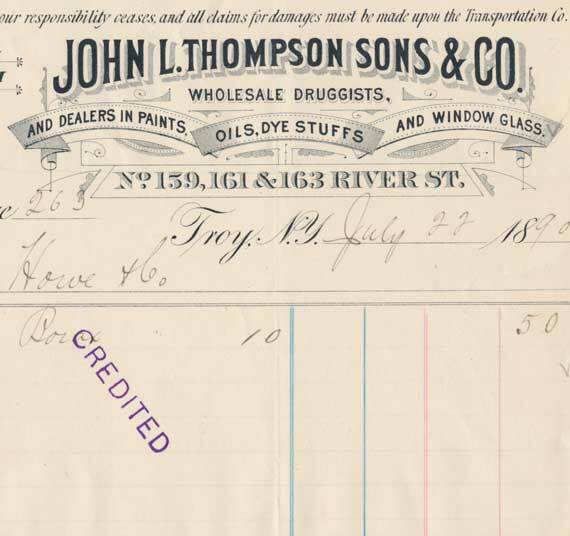 our responsibility ceases, and all claims for damages must be made upon the Transportation Co.
JOHN L. THOMPSON SONS & CO.
WHOLESALE DRUGGISTS,
AND DEALERS IN PAINTS, OILS, DYE STUFFS AND WINDOW GLASS.
No. 159, 161 & 163 RIVER ST.
263
Troy, N.Y. July 22 1890
Howe & Co.
10 50
CREDITED